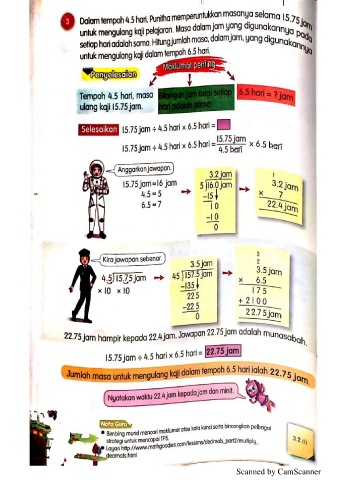 3
Dalam tempoh 4.5 hari, Punitha memperuntukkan masanya selama 15.75 jam
untuk mengulang kaji pelajaran. Masa dalam jam yang digunakannya pada
setiap hari adalah sama. Hitung jumlah masa, dalam jam, yang digunakannya
untuk mengulang kaji dalam tempoh 6.5 hari.
Penyelesaian
Maklumat penting
Tempoh 4.5 hari, masa
ulang kaji 15.75 jam.
Bilangan jam bagi setiap
hari adalah sama.
6.5 hari = ? jam
Selesaikan 15.75 jam ÷ 4.5 hari × 6.5 hari =
15.75 jam ÷ 4.5 hari × 6.5 hari = 15.75 jam / 4.5 hari × 6.5 hari
Anggarkan jawapan.
15.75 jam ≈ 16 jam
4.5 ≈ 5
6.5 ≈ 7
3.2 jam
5 16.0 jam
-15
1 0
-1 0
0
1
3.2 jam
× 7
22.4 jam
Kira jawapan sebenar.
4.5 15.75 jam
× 10 × 10
3.5 jam
45 157.5 jam
-135
22 5
-22 5
0
3
2
3.5 jam
× 6.5
1 7 5
+ 2 1 0 0
22.75 jam
22.75 jam hampir kepada 22.4 jam. Jawapan 22.75 jam adalah munasabah.
15.75 jam ÷ 4.5 hari × 6.5 hari = 22.75 jam
Jumlah masa untuk mengulang kaji dalam tempoh 6.5 hari ialah 22.75 jam.
Nyatakan waktu 22.4 jam kepada jam dan minit.
Nota Guru
• Bimbing murid mencari maklumat atau kata kunci serta bincangkan pelbagai
strategi untuk mencapai TPS.
• Layari http://www.mathgoodies.com/lessons/decimals_part2/multiply_
decimals.html
3.2 (i)
Scanned by CamScanner